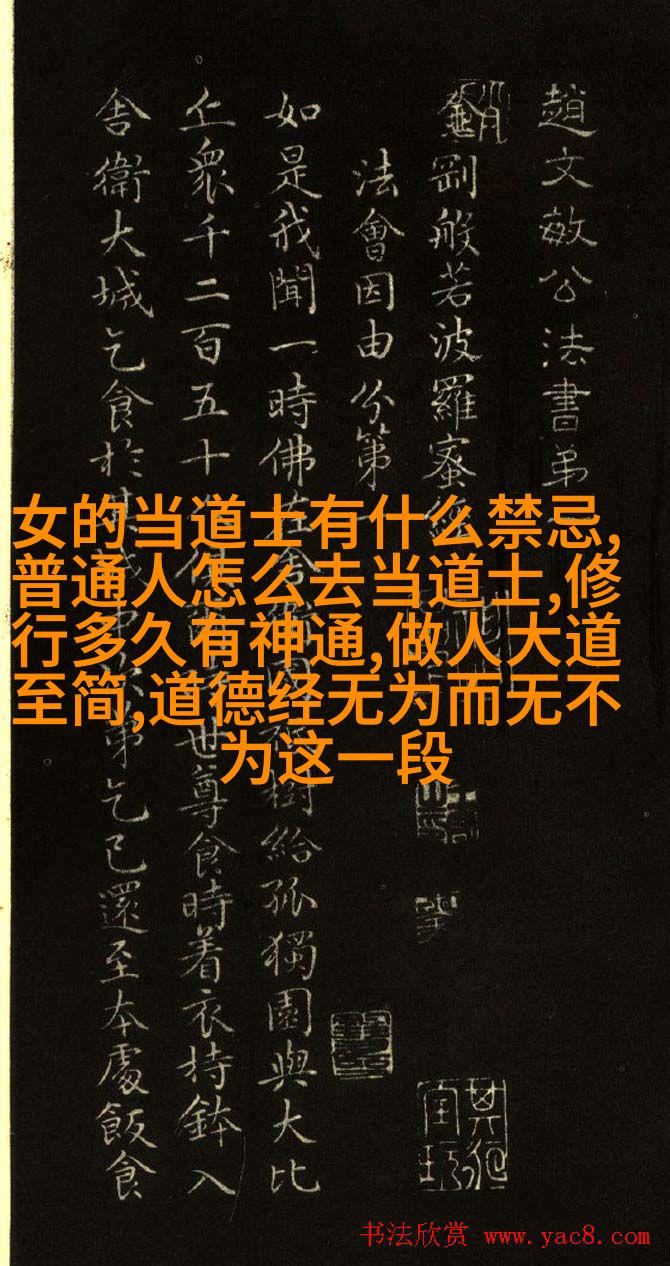 趙文敏公法書弟
金剛般若波羅蜜經
法會因由分第
如是我聞一時佛樹給孤獨園與大比
丘衆千二百五十世尊食時着衣持鉢入
舍衛大城乞食於第乞已還至本處飯食
女的当道士有什么禁忌,
普通人怎么去当道士,修
行多久有神通,做人大道
至简,道德经无为而无不
为这一段
书法欣赏 www.yac8.com